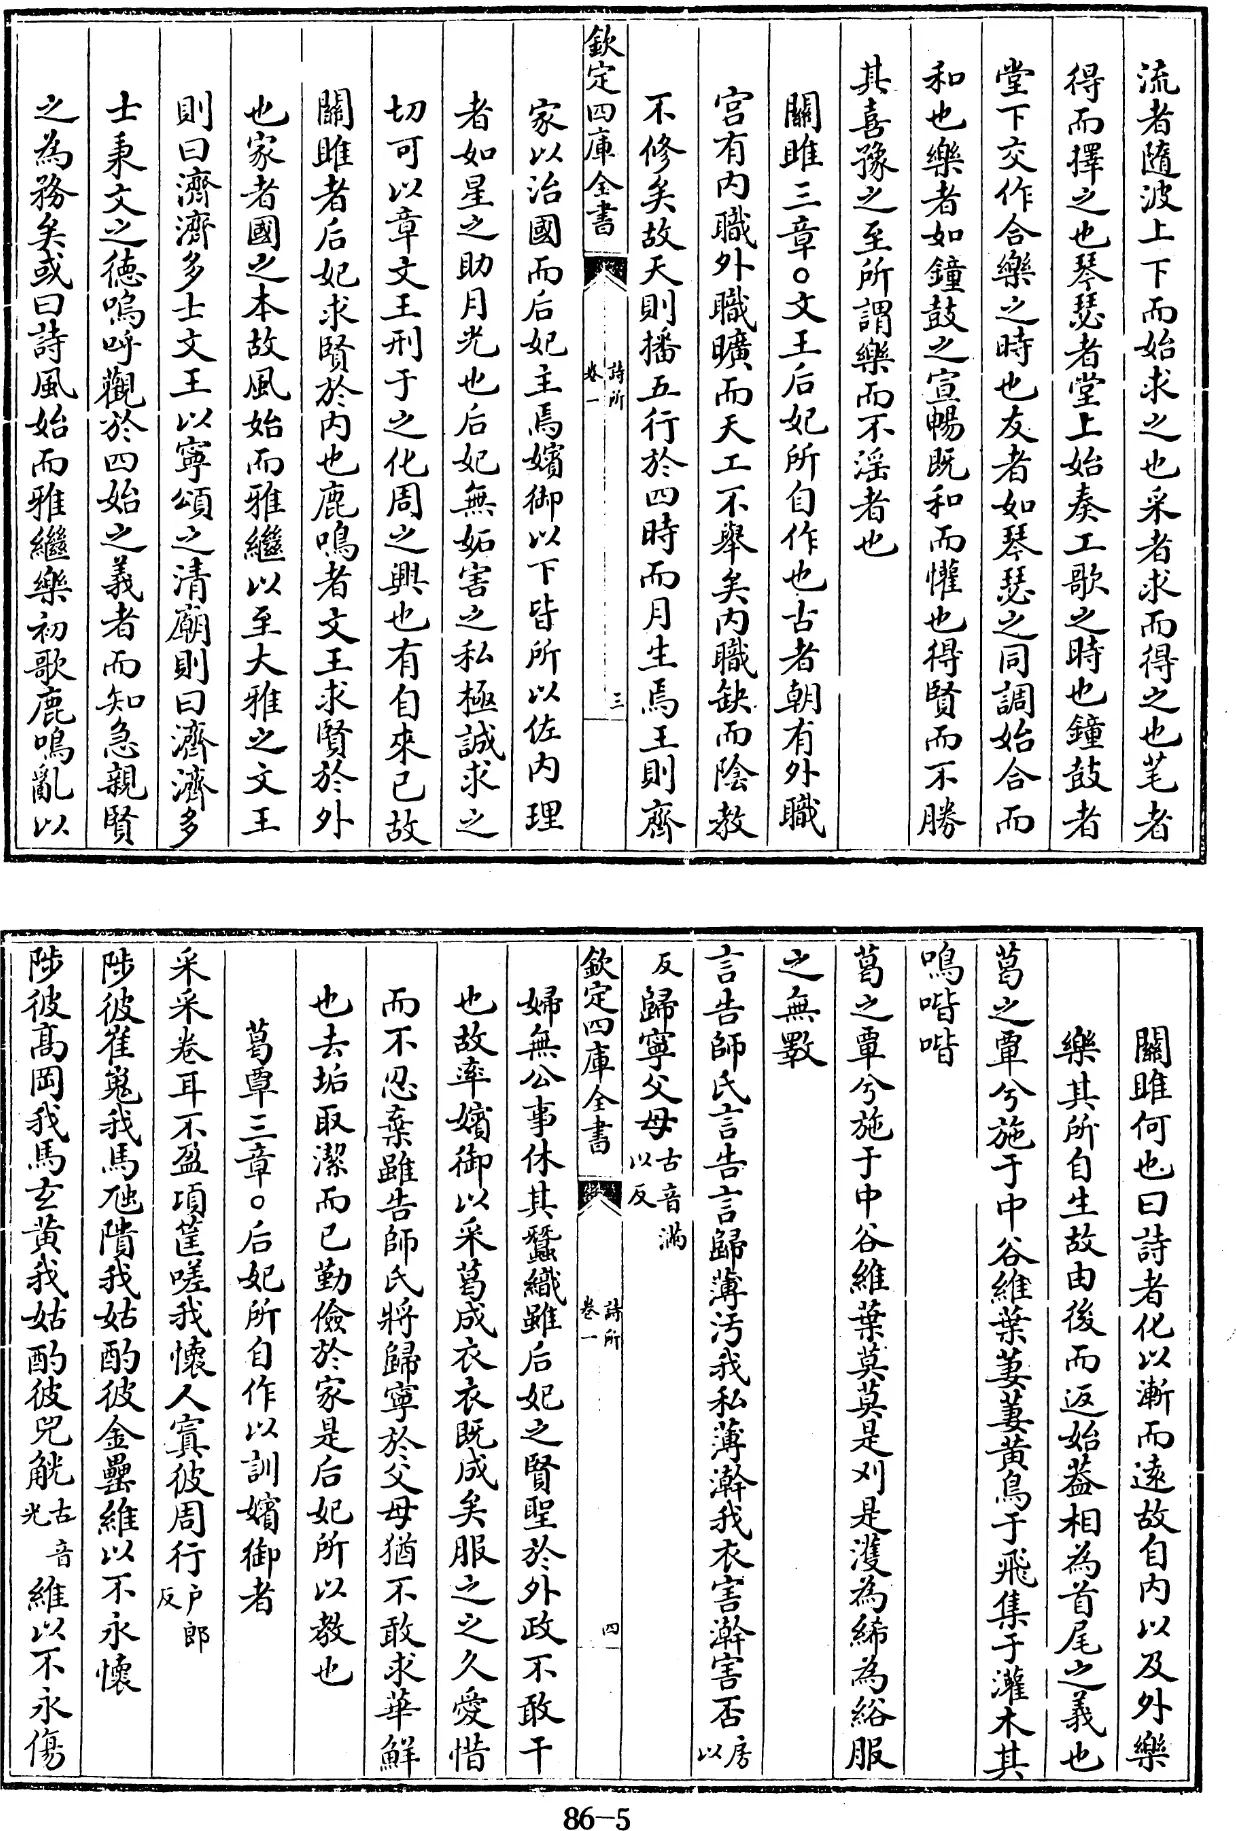 流者隨波上下而始求之也采者求而得之也芼者
得而擇之也琴瑟者堂上始奏工歌之時也鐘鼓者
堂下交作合樂之時也友者如琴瑟之同調始合而
和也樂者如鐘鼓之宣暢既和而懽也得賢而不勝
其喜豫之至所謂樂而不淫者也
關雎三章○文王后妃所自作也古者朝有外職
宮有内職外職曠而天工不舉矣内職缺而陰教
不修矣故天則播五行於四時而月生焉王則齊
欽定四庫全書
詩所
卷一
三
家以治國而后妃主焉嬪御以下皆所以佐内理
者如星之助月光也后妃無妬害之私極誠求之
切可以章文王刑于之化周之興也有自來已故
關雎者后妃求賢於内也鹿鳴者文王求賢於外
也家者國之本故風始而雅繼以至大雅之文王
則曰濟濟多士文王以寧頌之清廟則曰濟濟多
士秉文之德嗚呼觀於四始之義者而知急親賢
之為務矣或曰詩風始而雅繼樂初歌鹿鳴亂以
關雎何也曰詩者化以漸而遠故自内以及外樂
樂其所自生故由後而返始葢相為首尾之義也
葛之覃兮施于中谷維葉萋萋黄鳥于飛集于灌木其
鳴喈喈
葛之覃兮施于中谷維葉莫莫是刈是濩為絺為綌服
之無斁
言告師氏言告言歸薄汚我私薄澣我衣害澣害否房以
反歸寧父母古音滿以反
欽定四庫全書
詩所
卷一
四
婦無公事休其蠶織雖后妃之賢聖於外政不敢干
也故率嬪御以采葛成衣衣既成矣服之之久愛惜
而不忍棄雖告師氏將歸寧於父母猶不敢求華鮮
也去垢取潔而已勤儉於家是后妃所以教也
葛覃三章○后妃所自作以訓嬪御者
采采卷耳不盈頃筐嗟我懷人寘彼周行户郎反
陟彼崔嵬我馬虺隤我姑酌彼金罍維以不永懷
陟彼髙岡我馬𤣥黄我姑酌彼兕觥古音光維以不永傷
86-5